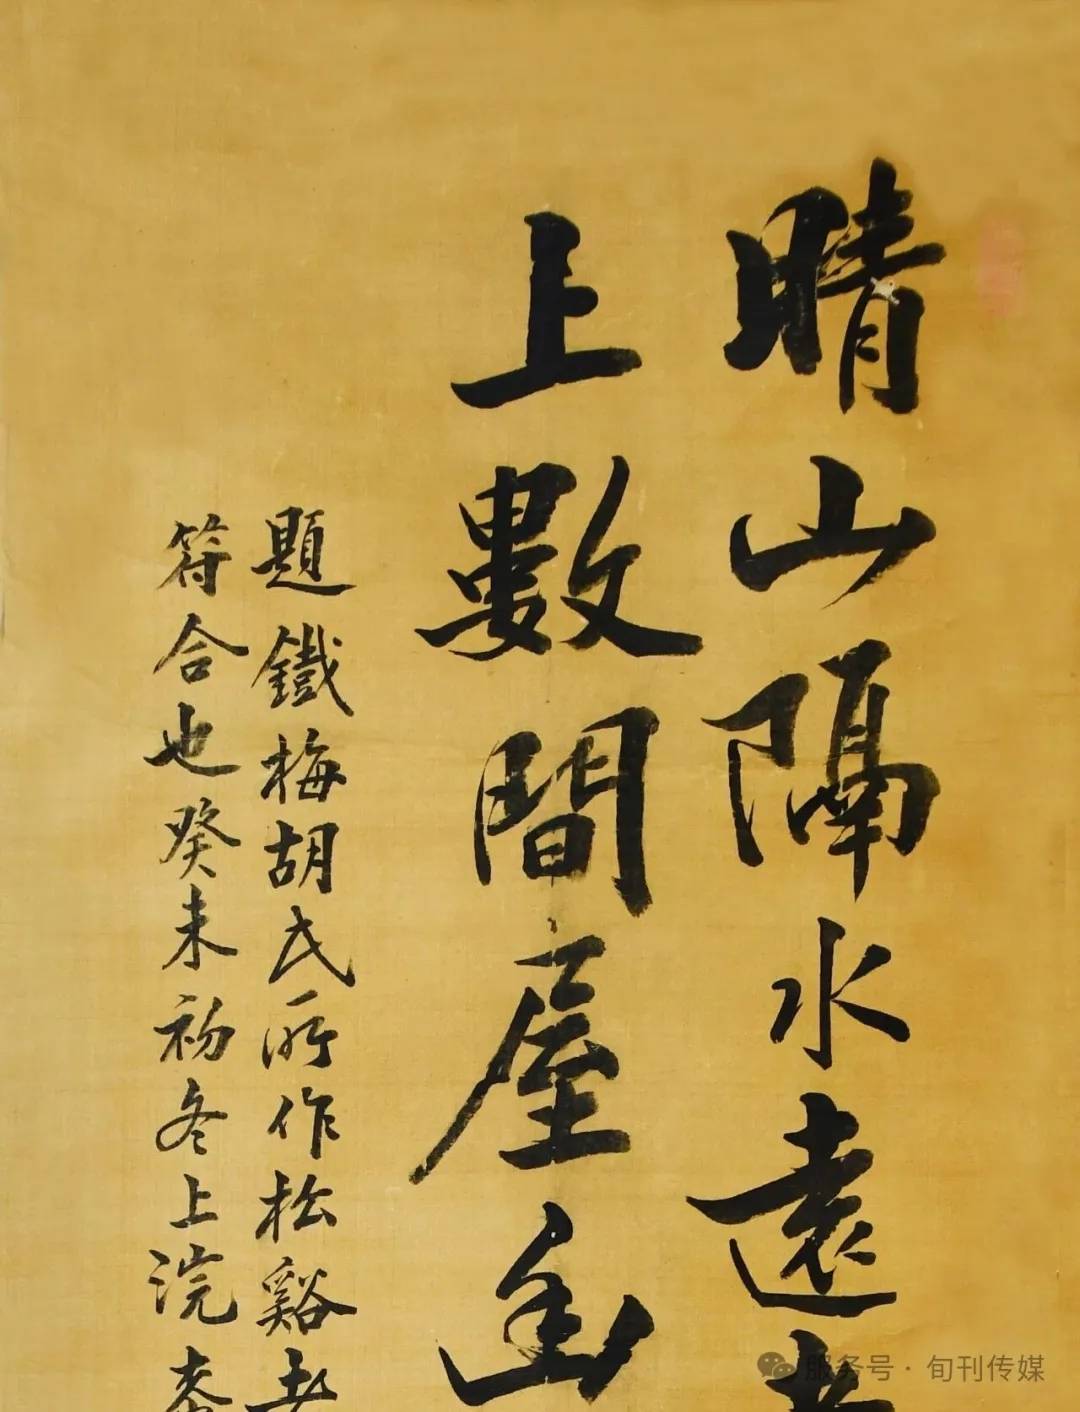 晴山隔水遠
上數間屋幽
題鐵梅胡氏所作松谿
符合也癸未初冬上浣
服务号·旬刊传媒